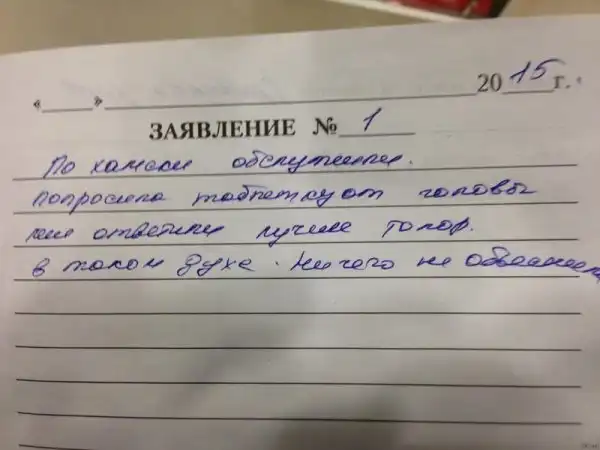 « » 2015 г.
ЗАЯВЛЕНИЕ № 1
По хамски обслужили.
Попросила таблетку от головы
мне ответили лучше топор.
в таком духе. Ничего не объяснили